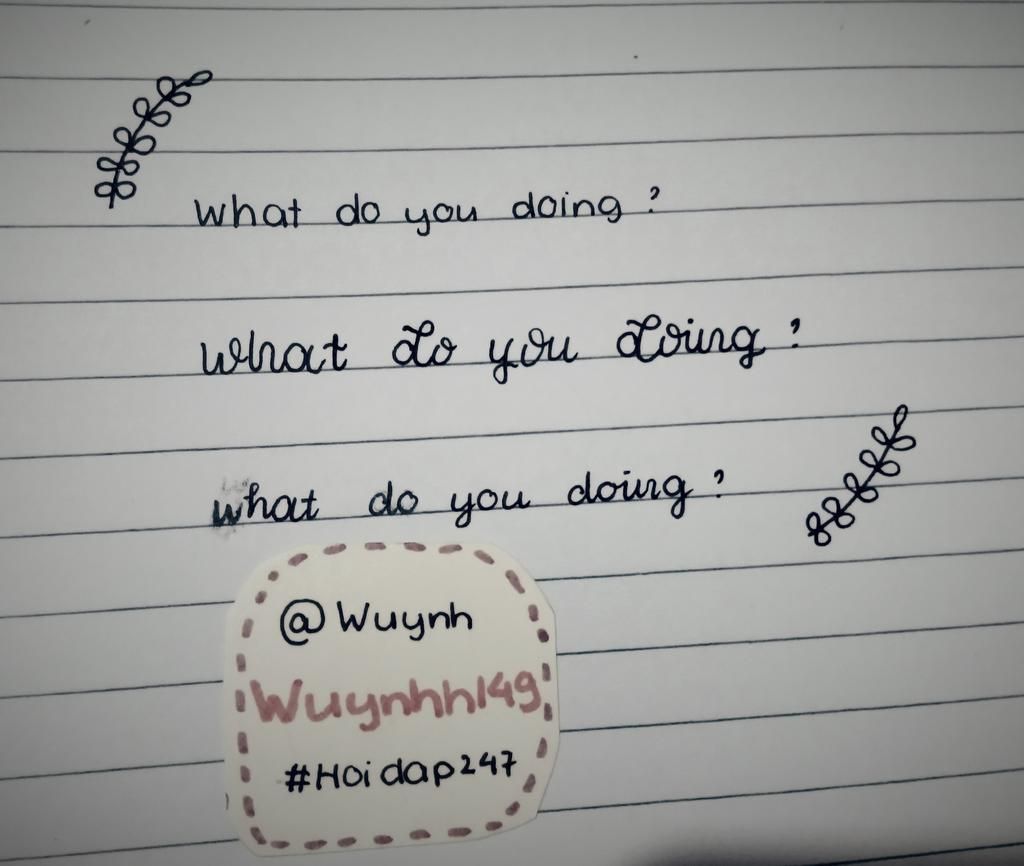 what do you doing?
what do you doing?
what do you doing?
@Wuynh
Wuynhh149
#Hoidap247